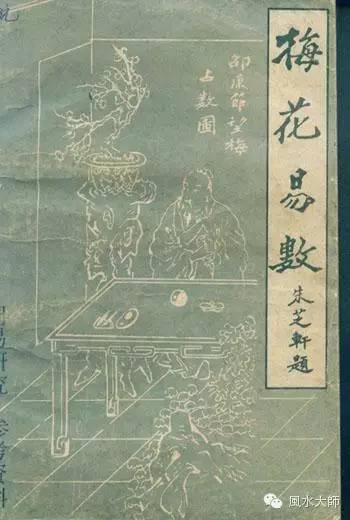 梅花易數
朱芝軒題
邵康節望梅
占數圖
研究
參考資料
風水大師